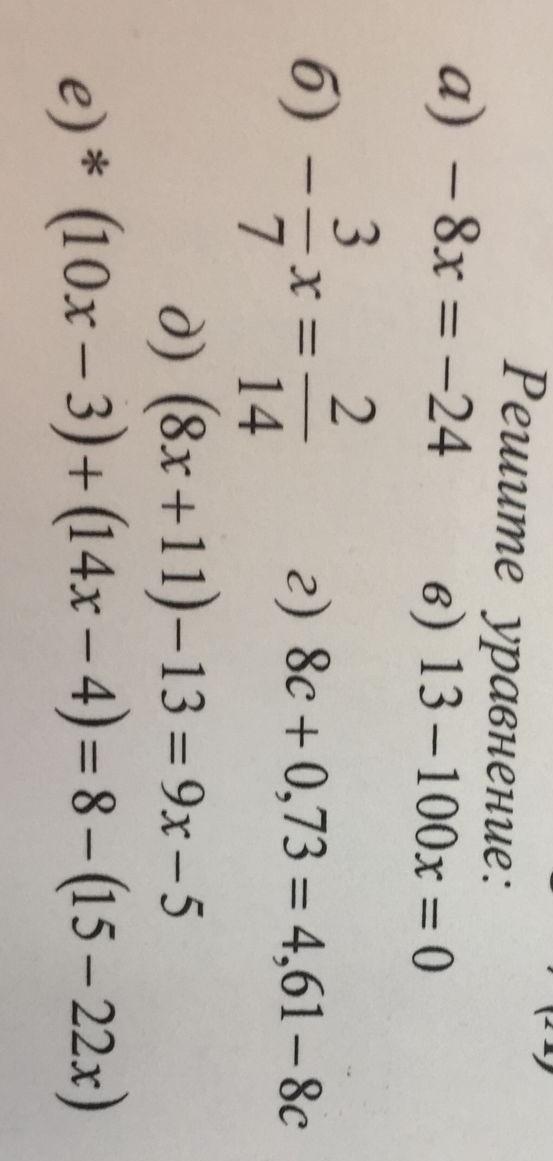 Решите уравнение:
а) −8x = −24 в) 13 − 100x = 0
б) −3/7 x = 2/14 г) 8c + 0,73 = 4,61 − 8c
д) (8x + 11) − 13 = 9x − 5
е)* (10x − 3) + (14x − 4) = 8 − (15 − 22x)